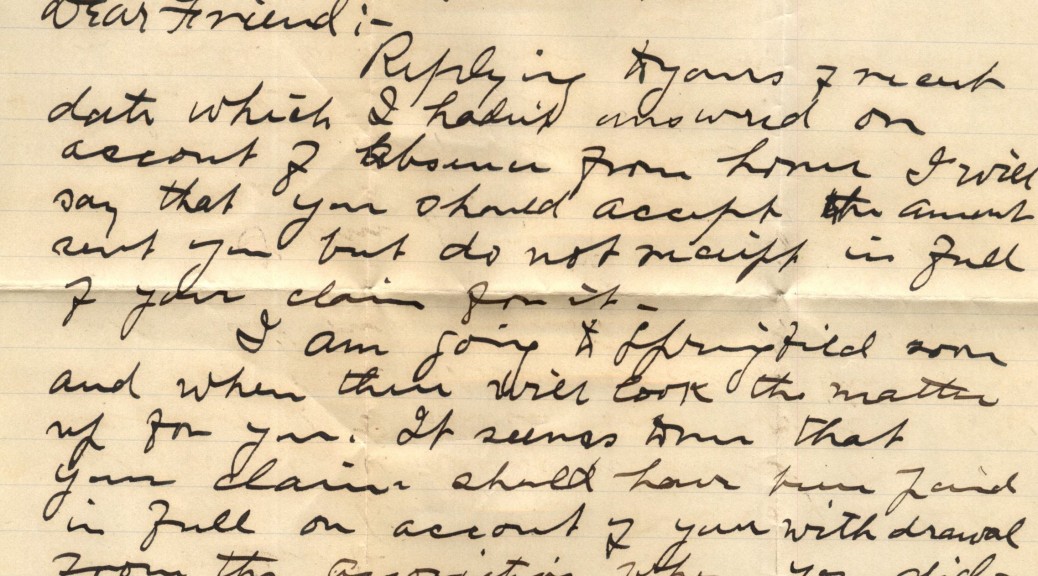 Dear Friend:-
Replying to yours of recent
date which I hadn't answered on
accont of absence from home I will
say that you should accept the amount
sent you but do not receipt in full
of your claim for it-
I am going to Springfield soon
and when there will look the matter
up for you. It seems to me that
your claim should have been paid
in full on accont of your withdrawal
from the association when you did